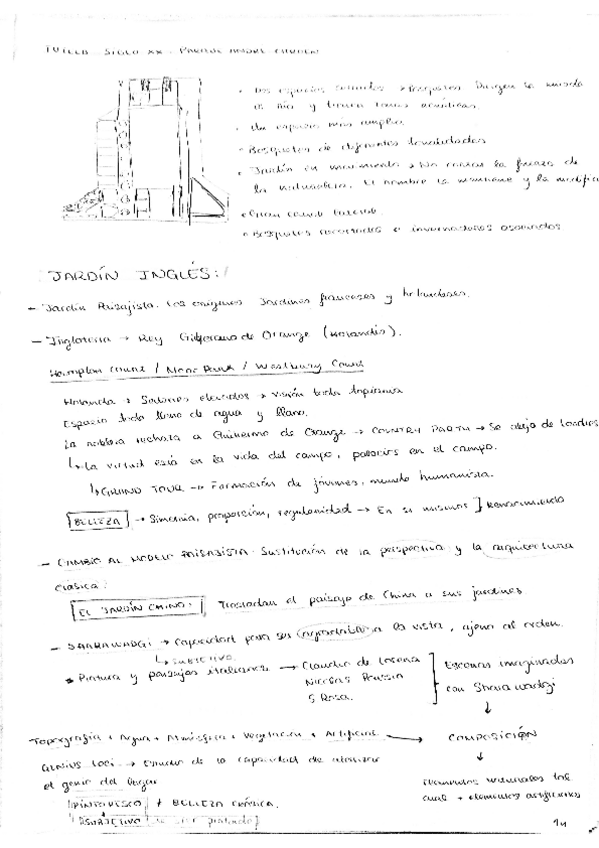 SIGLO XX - PARQUE ANDRÉ CITROËN
Dos espacios
es río y
Un espacio más amplio
Bosquetes de diferentes tonalidades
Jardín en movimiento → No cortar la fuerza de
la naturaleza. El hombre la mantiene y la modifica
Gran canal lateral.
Bosquetes recortados e invernaderos asociados
JARDÍN INGLÉS:
- Jardín Paisajista. Los orígenes Jardines franceses y holandeses.
- Inglaterra → Rey Guillermo de Orange (Holandés).
Hampton Court / / Westbury Court
Holanda → Salones elevados → Visión toda
Espacio todo lleno de agua y llano.
la nobleza rechaza a Guillermo de Orange → COUNTRY PARTY → Se aleja de Londres
↳ La virtud está en la vida del campo, palacios en el campo.
↳ GRAND TOUR → Formación de jóvenes, mundo humanista.
BELLEZA → Simetría, proporción, regularidad → En sí mismos ] Renacimiento
- CAMBIO AL MODELO PAISAJISTA. Sustitución de la perspectiva y la arquitectura
clásica:
EL JARDÍN CHINO: Trasladan el paisaje de China a sus jardines
- SHARAWADGI → Capacidad para ser agradable a la vista, ajeno al orden.
↳ SUBJETIVO.
Pintura y paisajes italianos → Claudio de Lorena
Nicolas Poussin
S. Rosa.
Escenas imaginadas
con Sharawadgi
↓
Topografía + Agua + Atmósfera + Vegetación + Artificial → COMPOSICIÓN
GENIUS LOCI → Estudio de la capacidad de
el genio del lugar
↓
Elementos naturales tal
cual + elementos artificiales
PINTORESCO + BELLEZA
SUBJETIVO